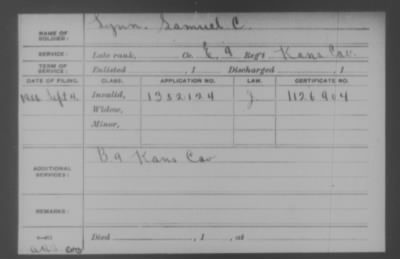 NAME OF SOLDIER: Lynn, Samuel C.
SERVICE: Late rank, Co. E, 9 Reg't Kans Cav.
TERM OF SERVICE: Enlisted , 1 Discharged , 1
DATE OF FILING. CLASS. APPLICATION NO. LAW. CERTIFICATE NO.
Sept Invalid, 1352124 J. 1126904
Widow,
Minor,
ADDITIONAL SERVICES: B 9 Kans Cav
REMARKS:
Died , 1 , at